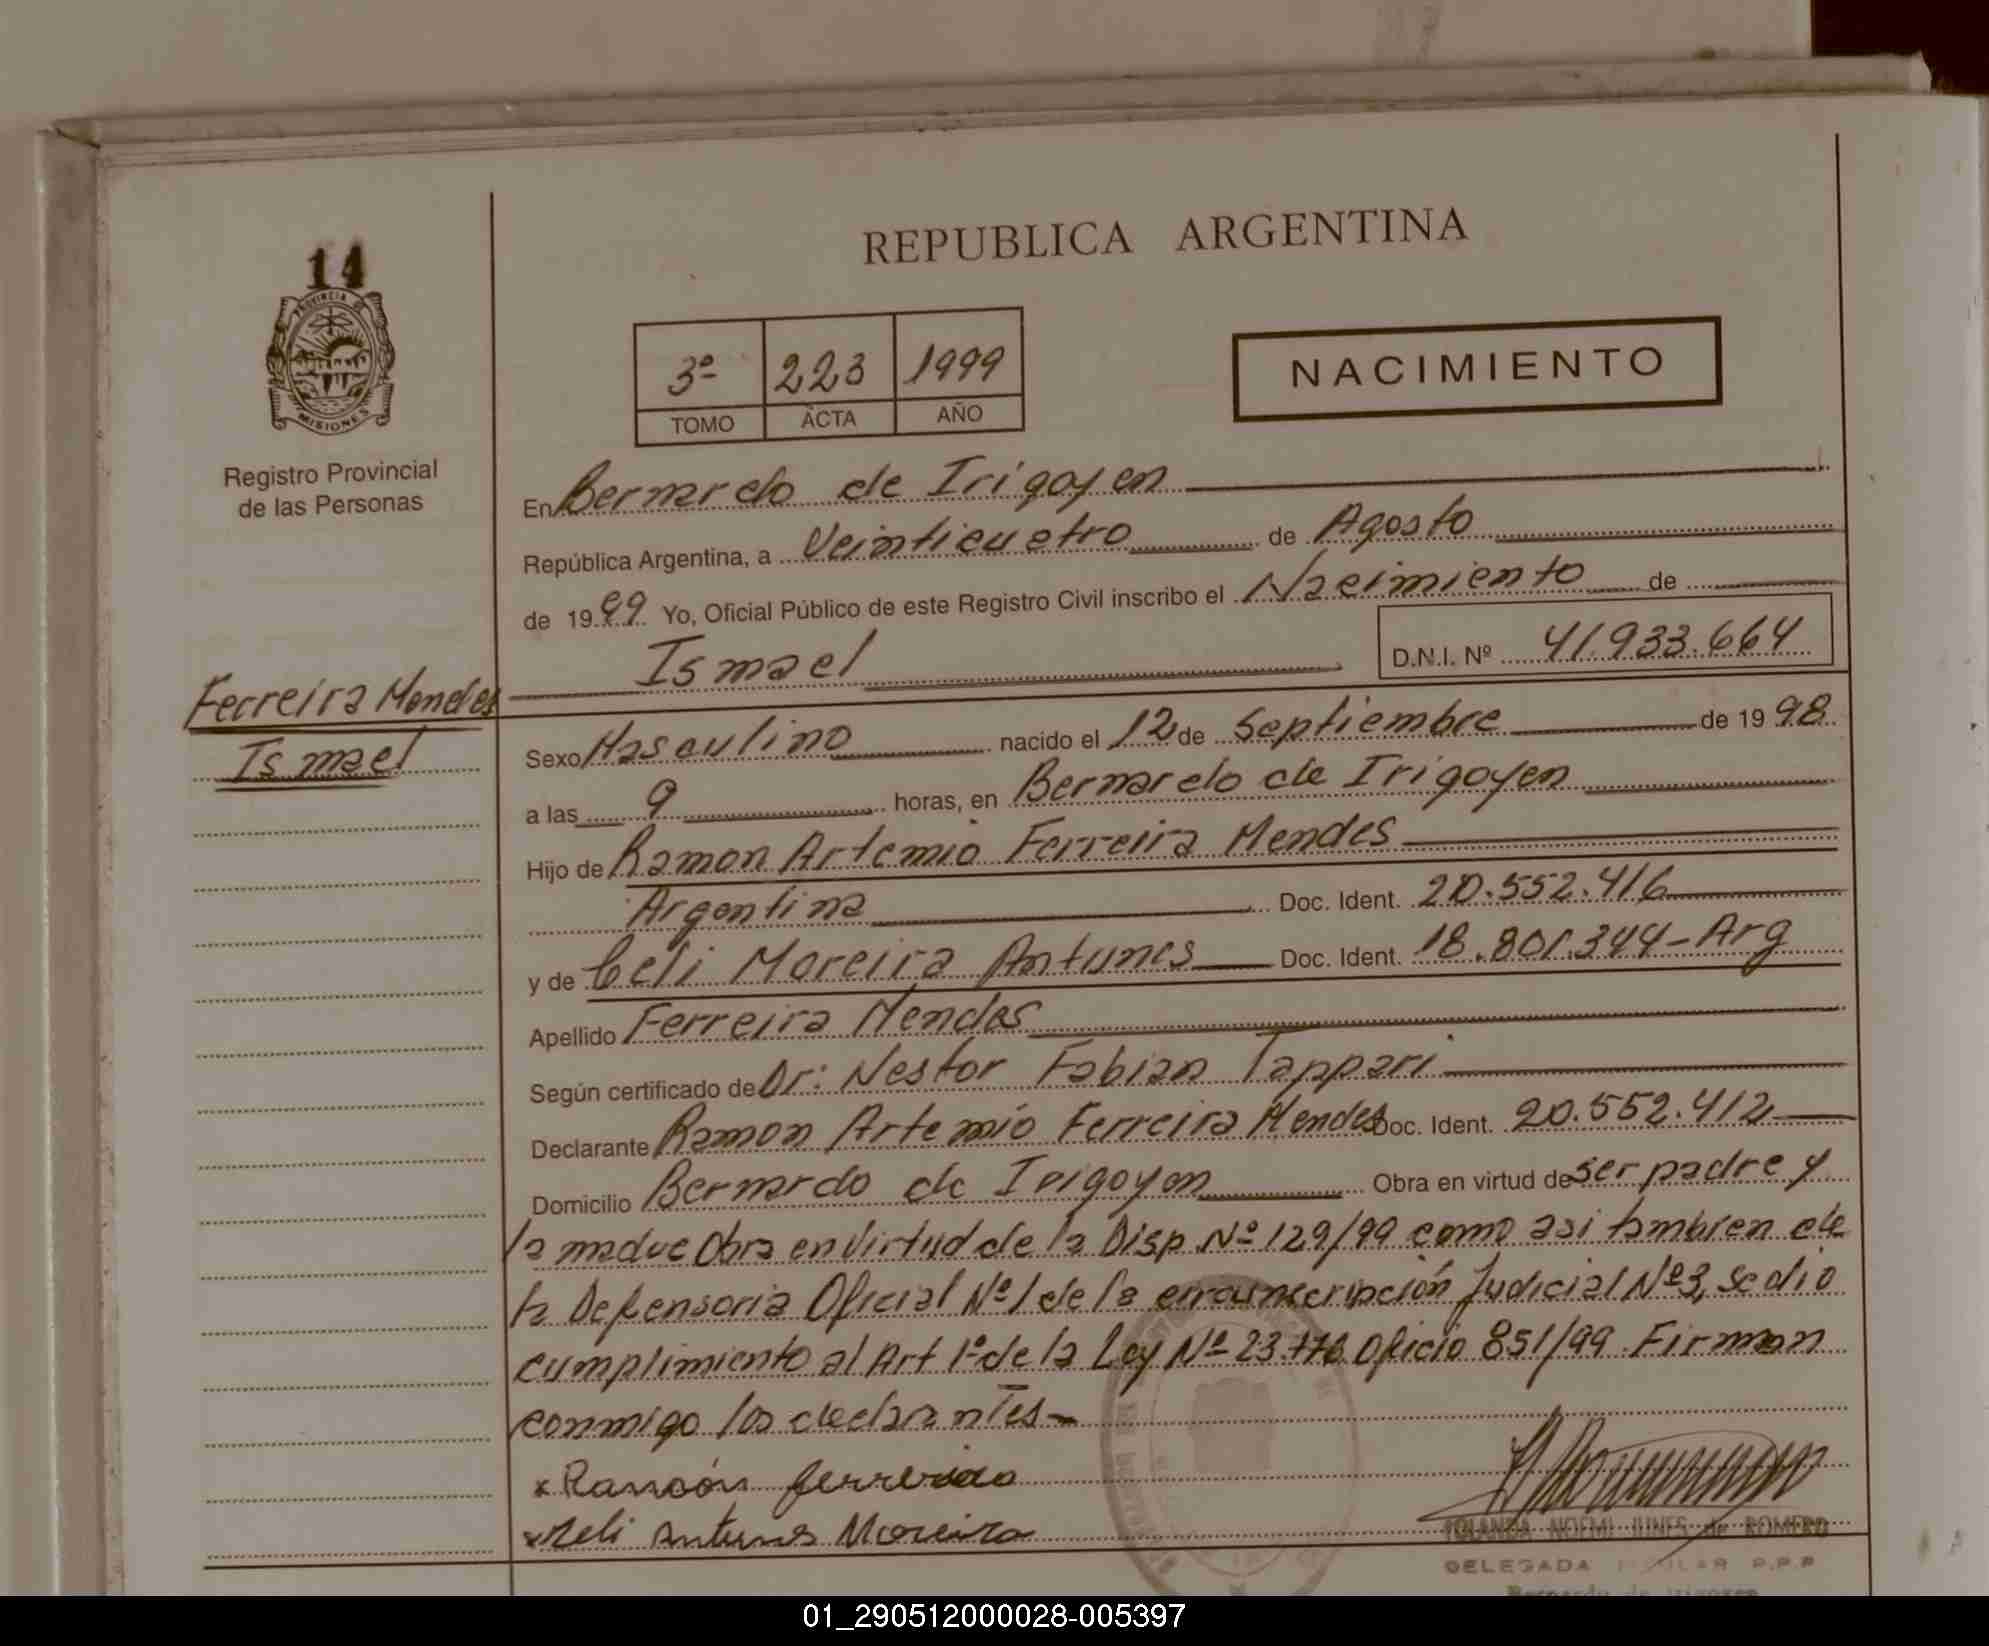 REPUBLICA ARGENTINA
14
PROVINCIA DE
MISIONES
Registro Provincial
de las Personas
3º 223 1999
TOMO ACTA AÑO
NACIMIENTO
En Bernardo de Irigoyen
República Argentina, a Veinticuatro de Agosto
de 1999 Yo, Oficial Público de este Registro Civil inscribo el Nacimiento de
Ismael D.N.I. Nº 41.933.664
Ferreira Mendes
Ismael
Sexo Masculino nacido el 12 de Septiembre de 1998
a las 9 horas, en Bernardo de Irigoyen
Hijo de Ramon Artemio Ferreira Mendes
Argentina Doc. Ident. 20.552.416
y de Celi Moreira Antunes Doc. Ident. 18.801.344-Arg
Apellido Ferreira Mendes
Según certificado de Dr: Nestor Fabian Tappari
Declarante Ramon Artemio Ferreira Mendes Doc. Ident. 20.552.412
Domicilio Bernardo de Irigoyen Obra en virtud de ser padre y
la madre Obra en virtud de la Disp Nº 129/99 como asi tambien de
la Defensoria Oficial Nº 1 de la circunscripción Judicial Nº 3, se dio
cumplimiento al Art 1º de la Ley Nº 23.776 Oficio 851/99. Firman
conmigo los declarantes-
x Ramón ferreira
x Celi Antunes Moreira
YOLANDA NOEMI JUNES de ROMERO
DELEGADA R.P.P
Bernardo de Irigoyen
01_290512000028-005397